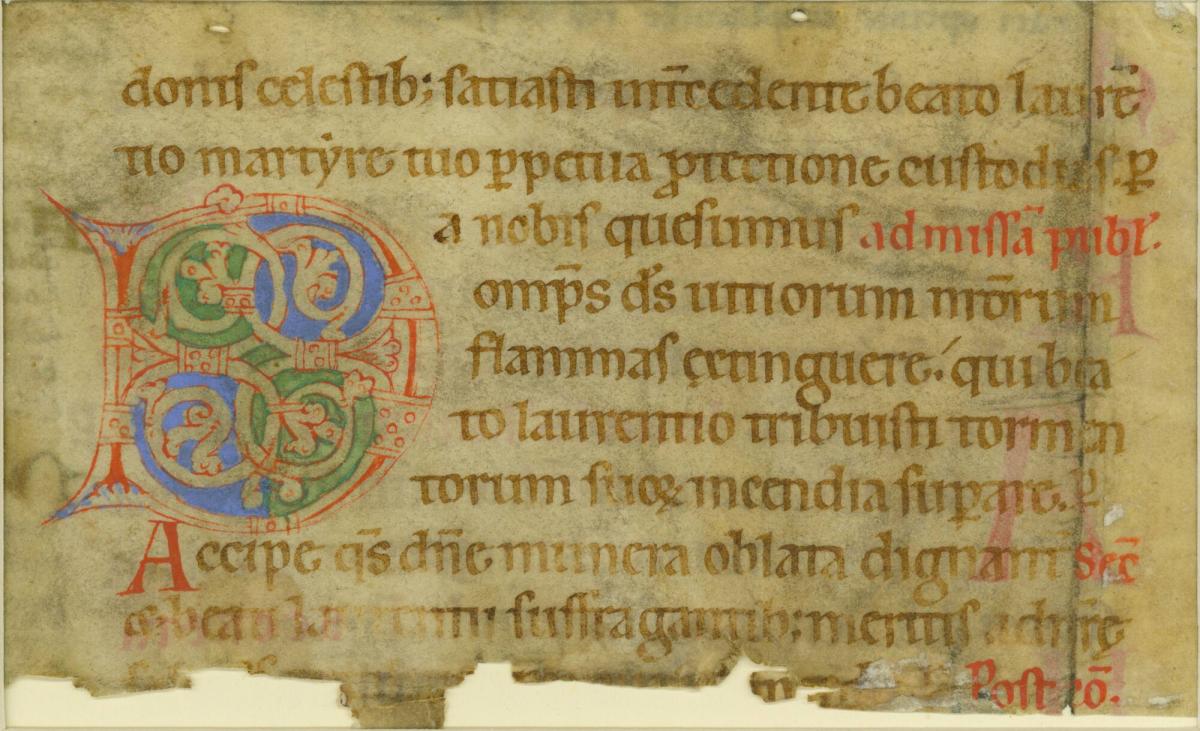 donis celestib; satiasti int̄cedente beato laurē
tio martẏre tuo ꝑpetua ꝓtectione custodias. ꝑ
Da nobis quesumus ad missā publ'.
omp̄s d̄s uitiorum nr̄orum
flammas extinguere. qui bea
to laurentio tribuisti tormen
torum suoꝝ incendia suꝑare. ꝑ
Accipe q̄s dn̄e munera oblata dignant̄ Sec̄
⁊ beati laurentii suffragantib; meritis ad nr̄e
Post cō.